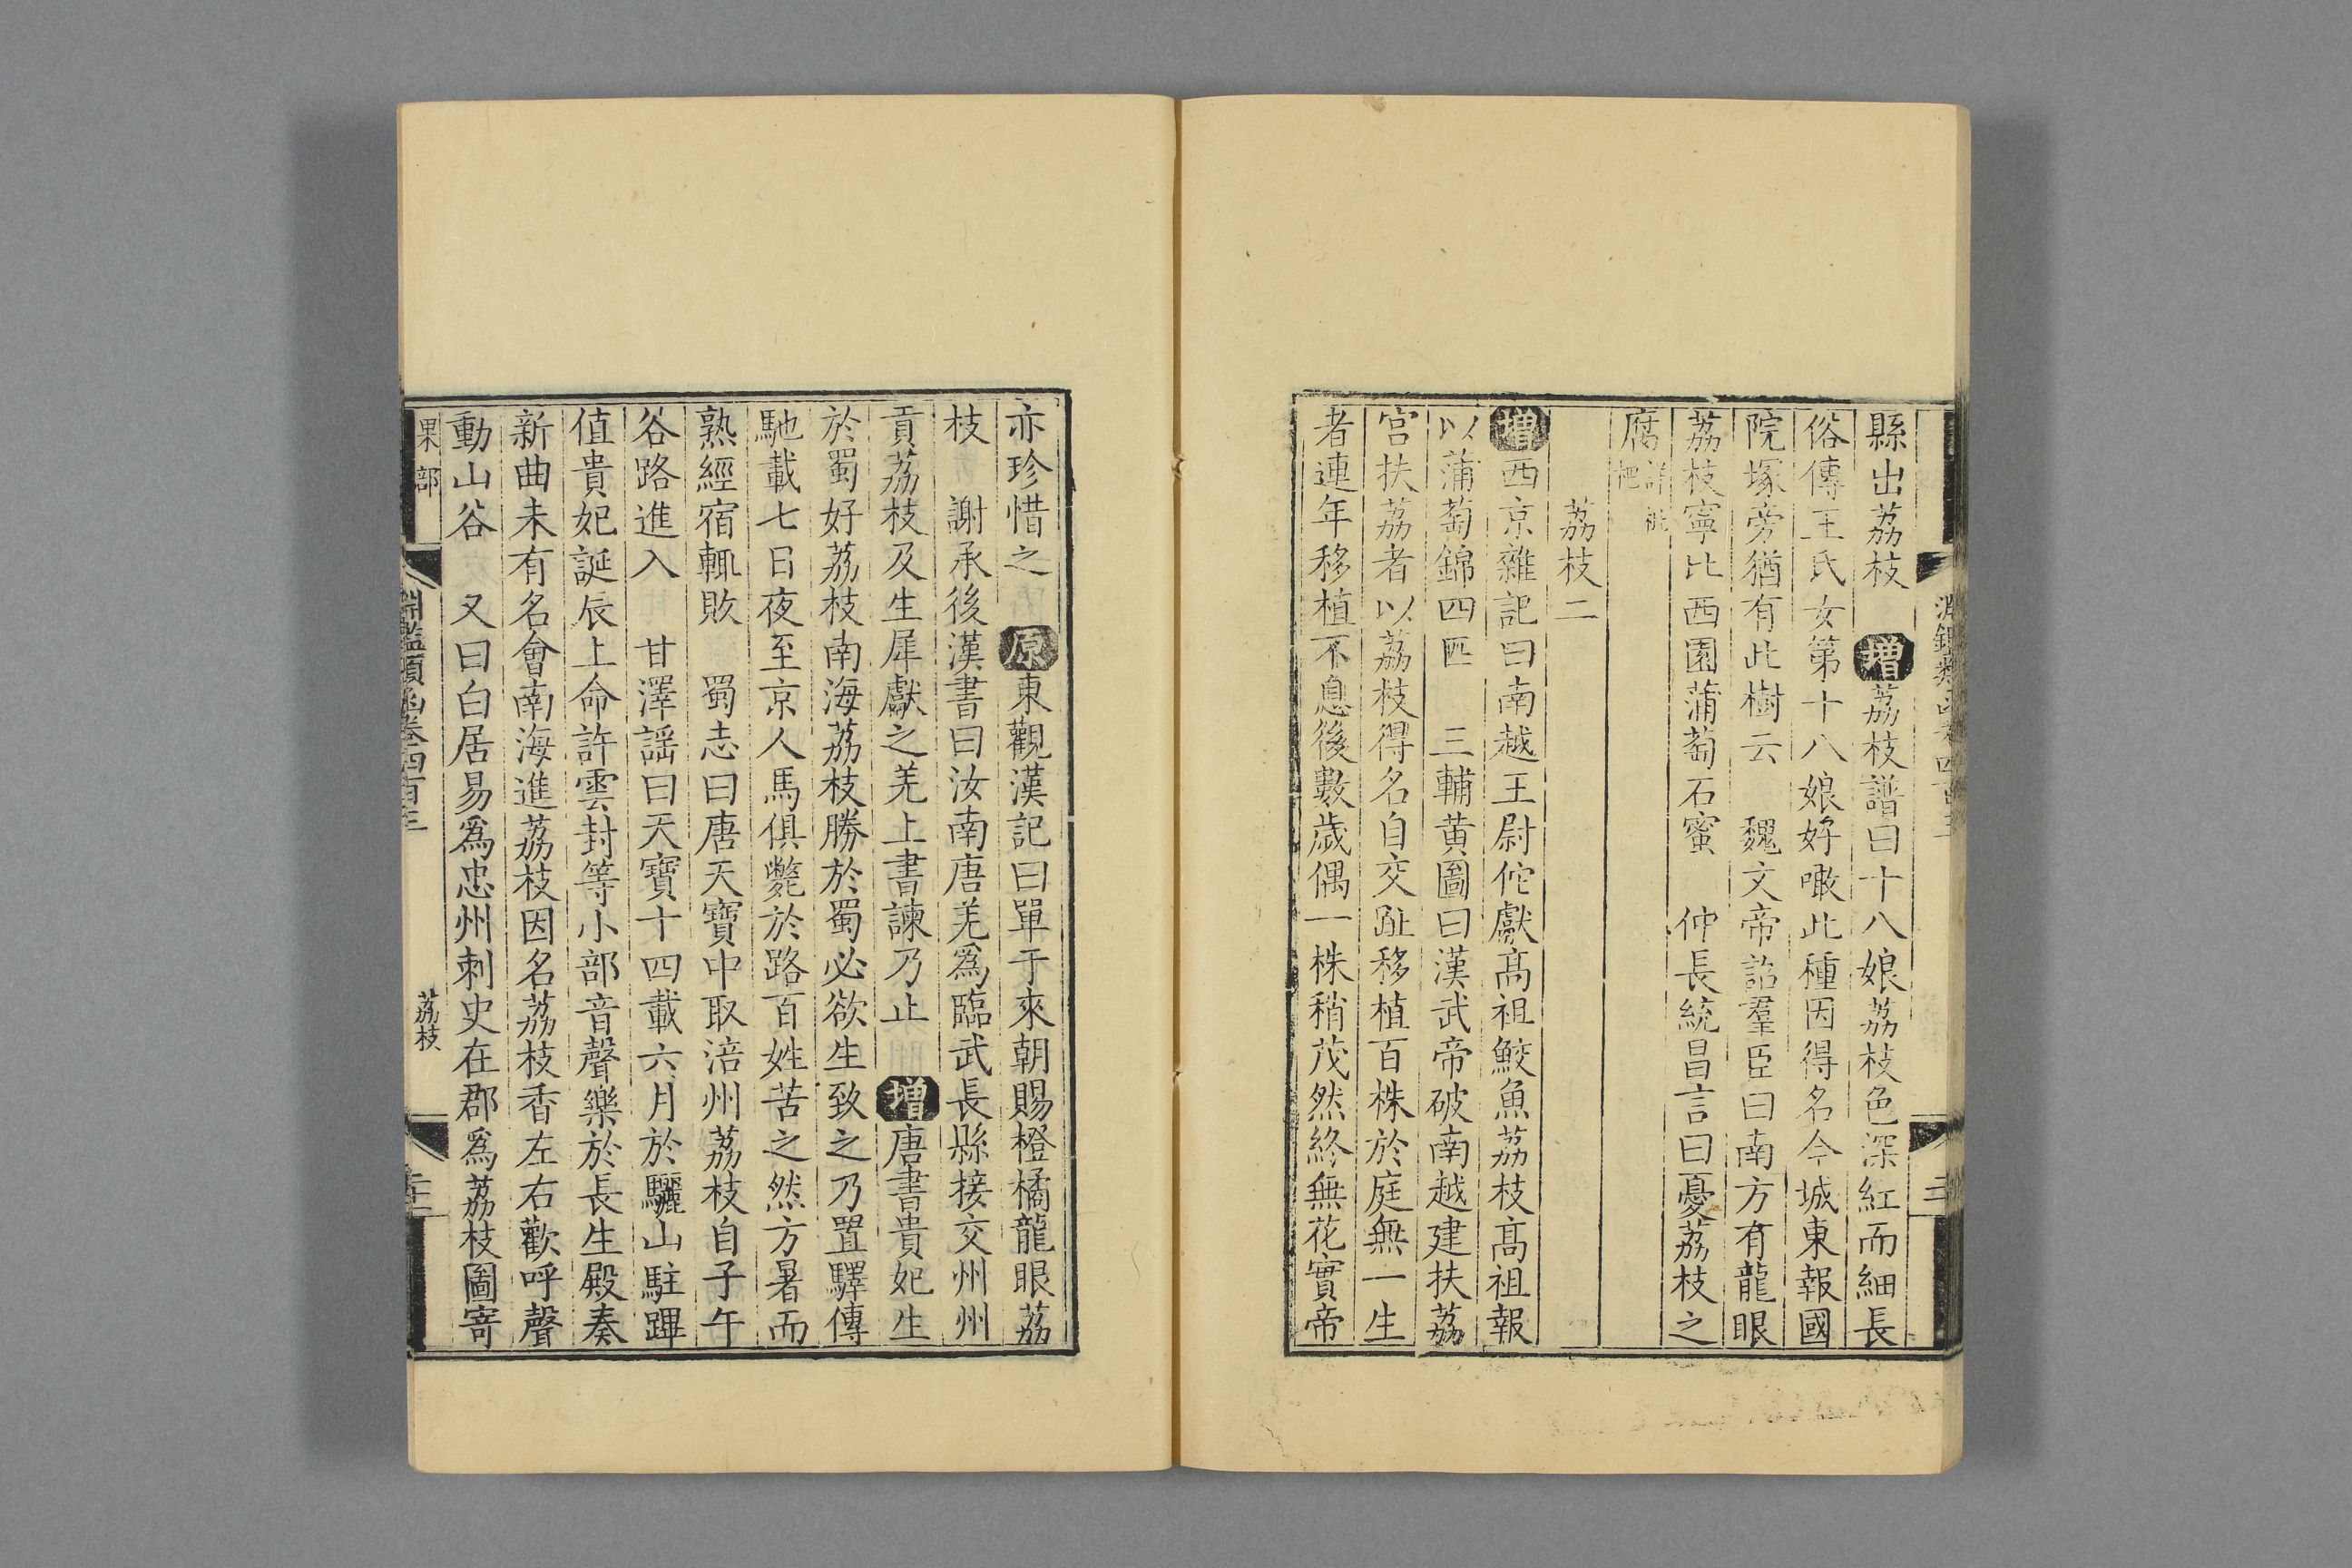 縣出荔枝 增荔枝譜曰十八娘荔枝色深紅而細長
俗傳王氏女第十八娘好噉此種因得名今城東報國
院塚旁猶有此樹云 魏文帝詔羣臣曰南方有龍眼
荔枝寧比西園蒲萄石蜜 仲長統昌言曰憂荔枝之
腐
荔枝二
增西京雜記曰南越王尉佗獻髙祖鮫魚荔枝髙祖報
以蒲萄錦四匹 三輔黄圖曰漢武帝破南越建扶荔
宫扶荔者以荔枝得名自交趾移植百株於庭無一生
者連年移植不息後數歲偶一株稍茂然終無花實帝
亦珍惜之 原東觀漢記曰單于來朝賜橙橘龍眼荔
枝 謝承後漢書曰汝南唐羌爲臨武長縣接交州州
貢荔枝及生犀獻之羌上書諫乃止 增唐書貴妃生
於蜀好荔枝南海荔枝勝於蜀必欲生致之乃置驛傳
馳載七日夜至京人馬俱斃於路百姓苦之然方暑而
熟經宿輒敗 蜀志曰唐天寶中取涪州荔枝自子午
谷路進入 甘澤謡曰天寶十四載六月於驪山駐蹕
值貴妃誕辰上命許雲封等小部音聲樂於長生殿奏
新曲未有名會南海進荔枝因名荔枝香左右歡呼聲
動山谷 又曰白居易爲忠州刺史在郡爲荔枝圖寄
果部
淵鑑類函卷四百三
荔枝